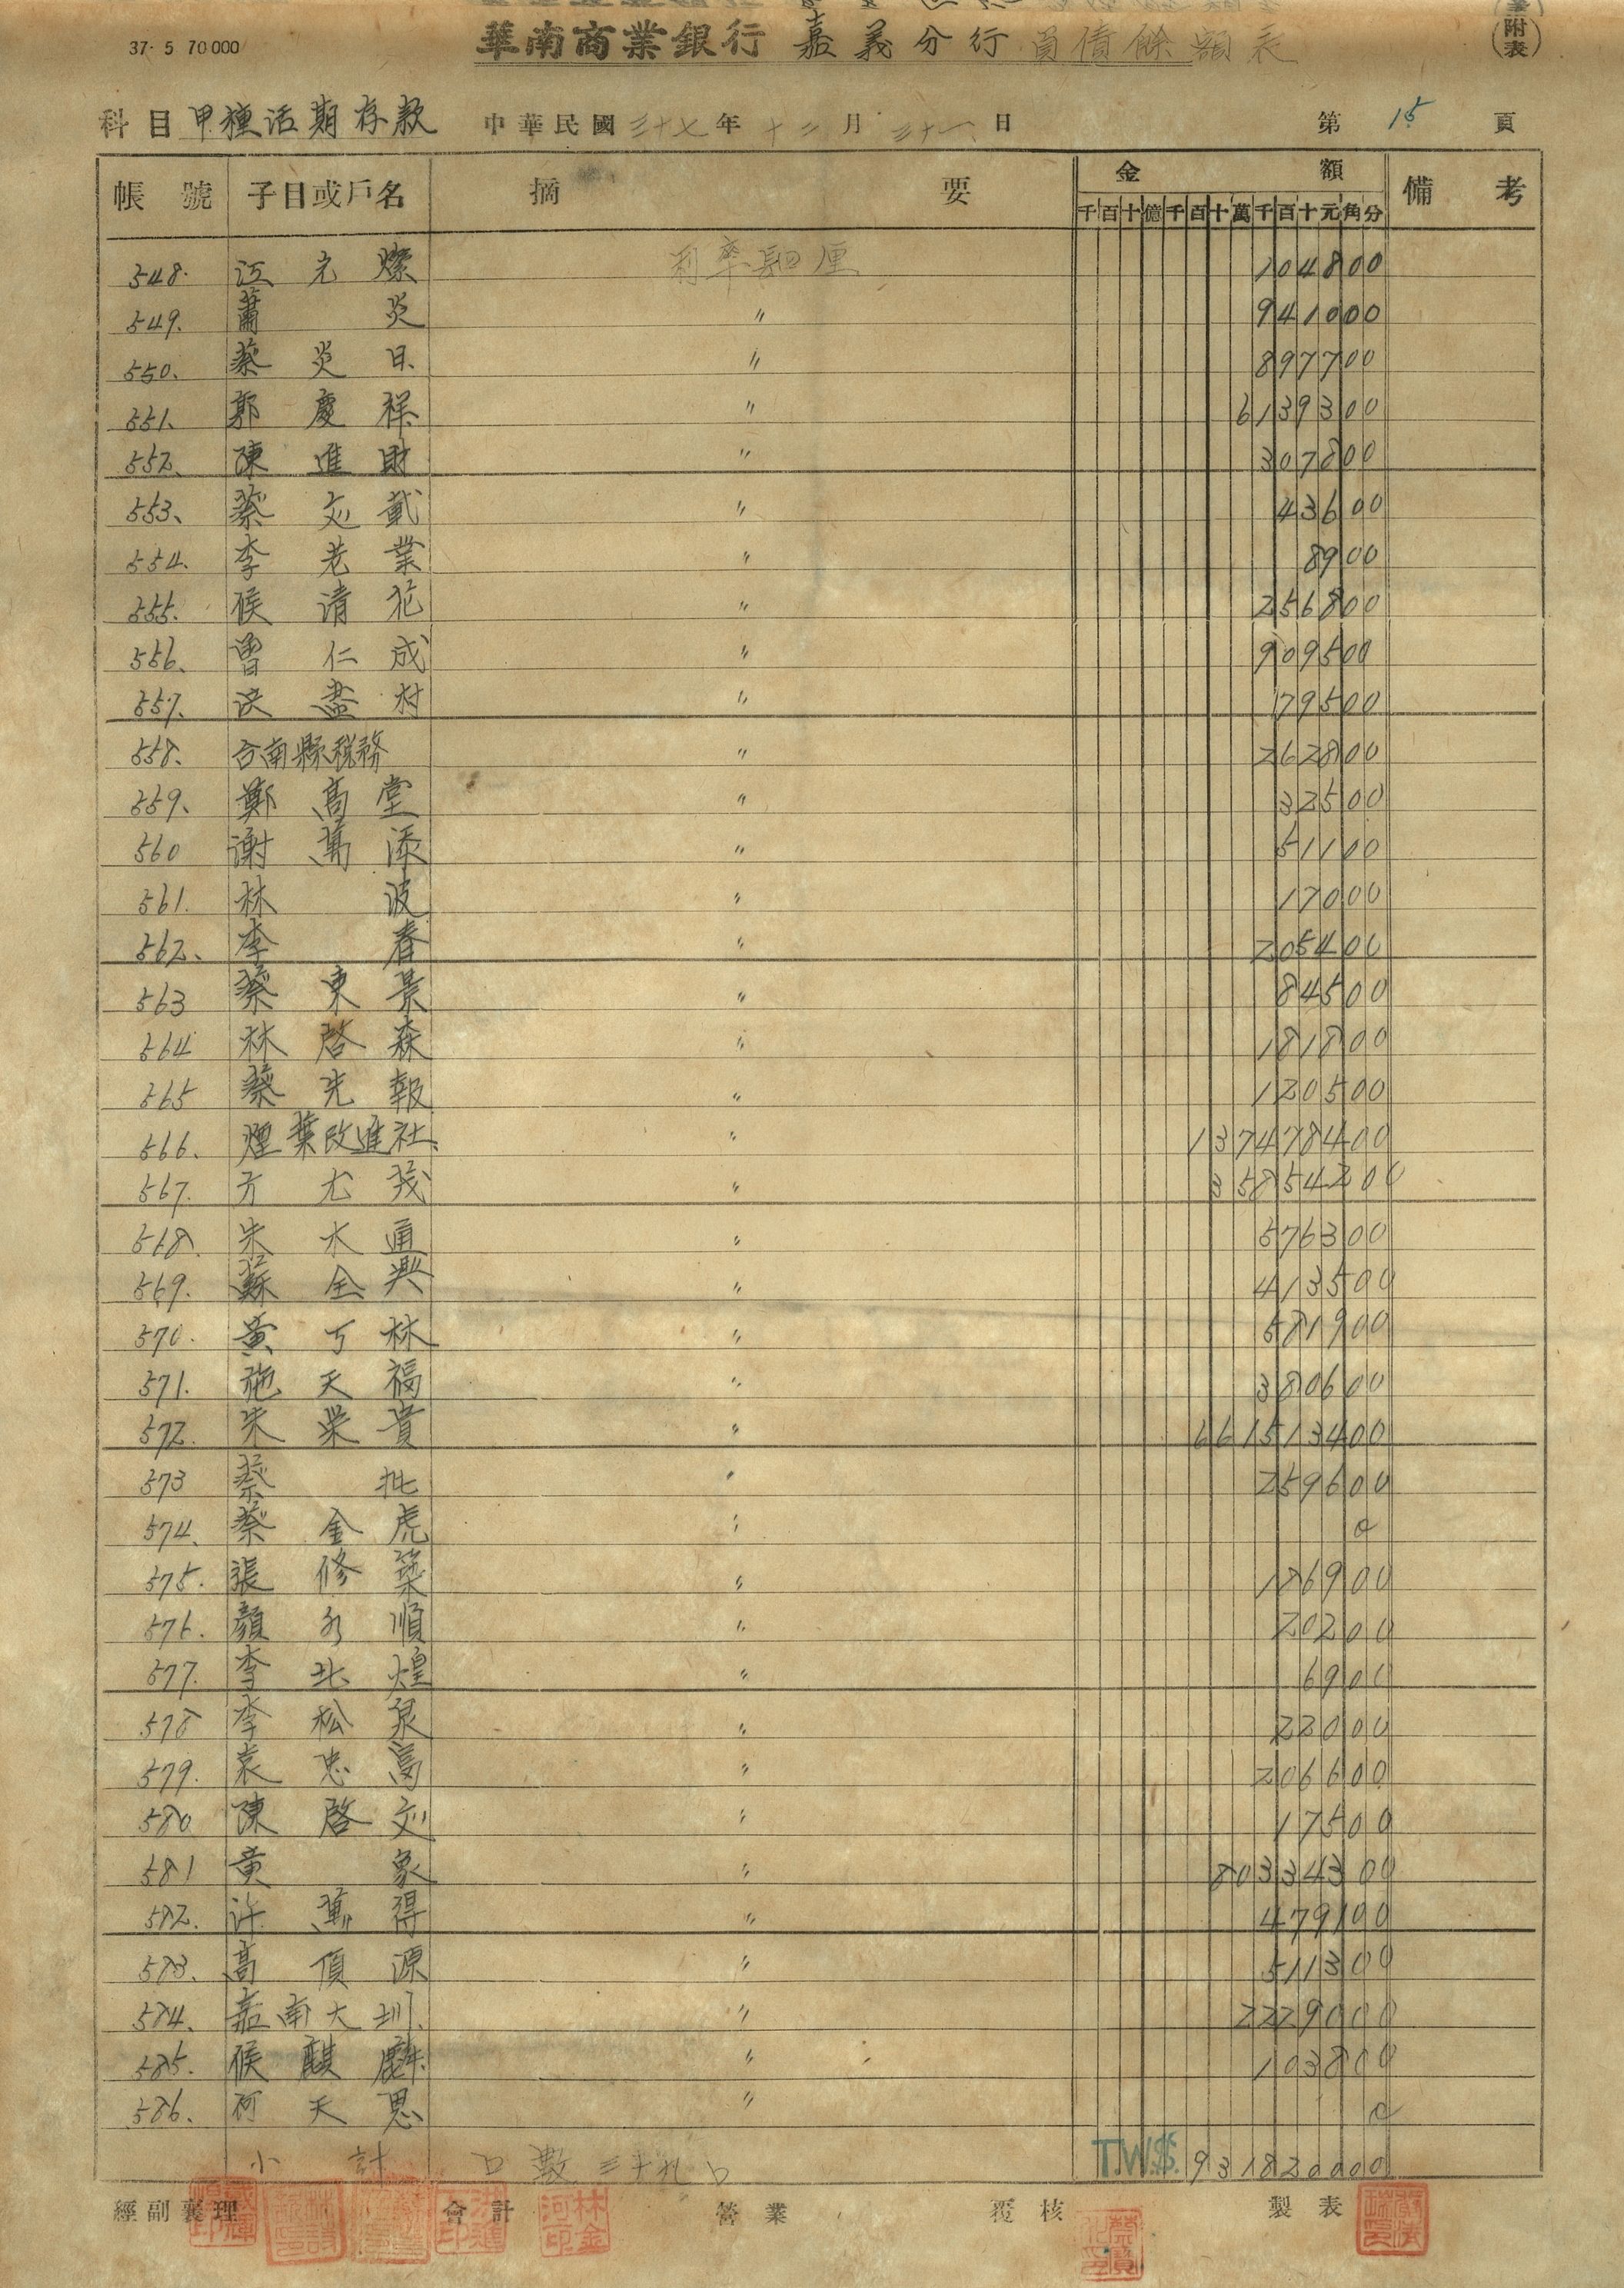 37· 5 70.000
華南商業銀行 嘉義分行 負債餘額表
(附表)
科目 甲種活期存款 中華民國 三十七 年 十二 月 三十一 日 第 15 頁
帳號 子目或戶名 摘要 金額 備考
千百十億千百十萬千百十元角分
548. 江元燦 利率 厘 104800
549. 蕭炎 〃 941000
550. 蔡炎日 〃 897700
551. 郭慶祥 〃 6139300
552. 陳進財 〃 307800
553. 蔡文戴 〃 43600
554. 李老業 〃 8900
555. 侯清花 〃 256800
556. 曾仁成 〃 909500
557. 洪盡村 〃 179500
558. 台南縣稅務 〃 262800
559. 鄭高堂 〃 32500
560 謝萬添 〃 51100
561. 林波 〃 17000
562. 李春 〃 205400
563 蔡東景 〃 84500
564 林啓森 〃 181800
565 蔡先報 〃 120500
566. 煙葉改進社 〃 137478400
567. 方尤茂 〃 35854200
568. 朱水通 〃 576300
569. 蘇全興 〃 413500
570. 黃丁林 〃 581900
571. 施天福 〃 380600
572. 朱榮貴 〃 661513400
573 蔡批 〃 259600
574. 蔡金虎 〃 0
575. 張修築 〃 186900
576. 顏永順 〃 20200
577. 李北煌 〃 6900
578 李松泉 〃 22000
579. 袁忠萬 〃 206600
580 陳啓文 〃 17500
581 黃象 〃 80334300
582. 許萬得 〃 479100
583. 高頂源 〃 511300
584. 嘉南大圳 〃 2229000
585. 侯麒麟 〃 103800
586. 柯天恩 〃 0
小計 口數三十九口 T.W.$. 931820000
經副襄理 會計 營業 覆核 製表